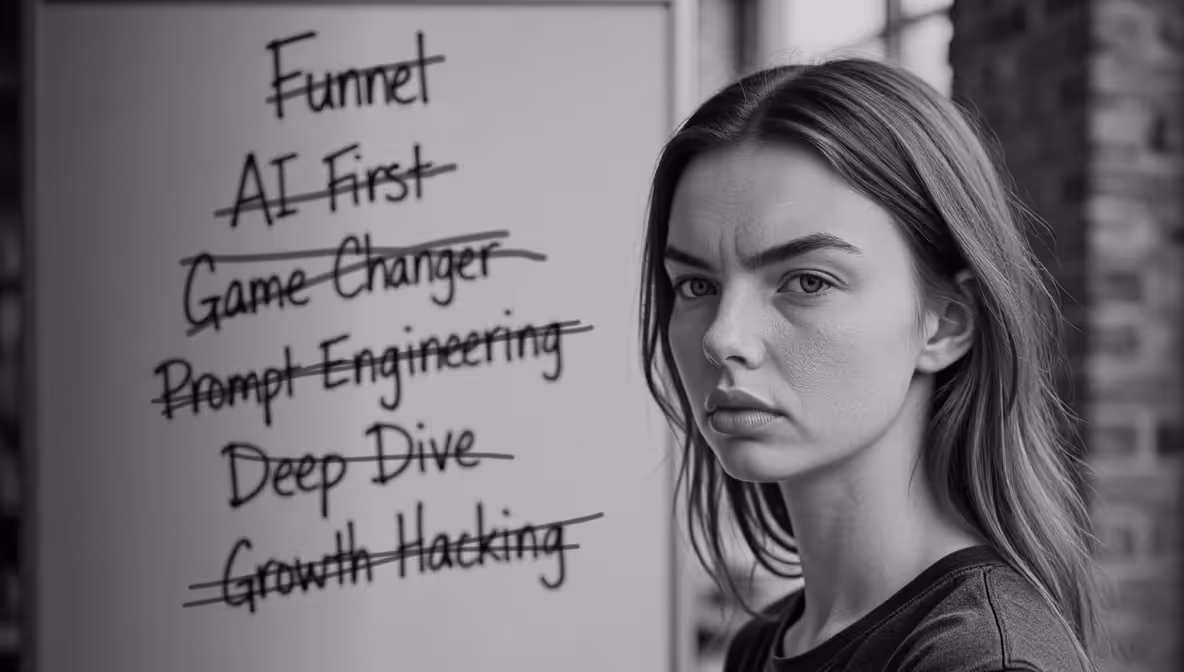 Funnel
AI First
Game Changer
Prompt Engineering
Deep Dive
Growth Hacking